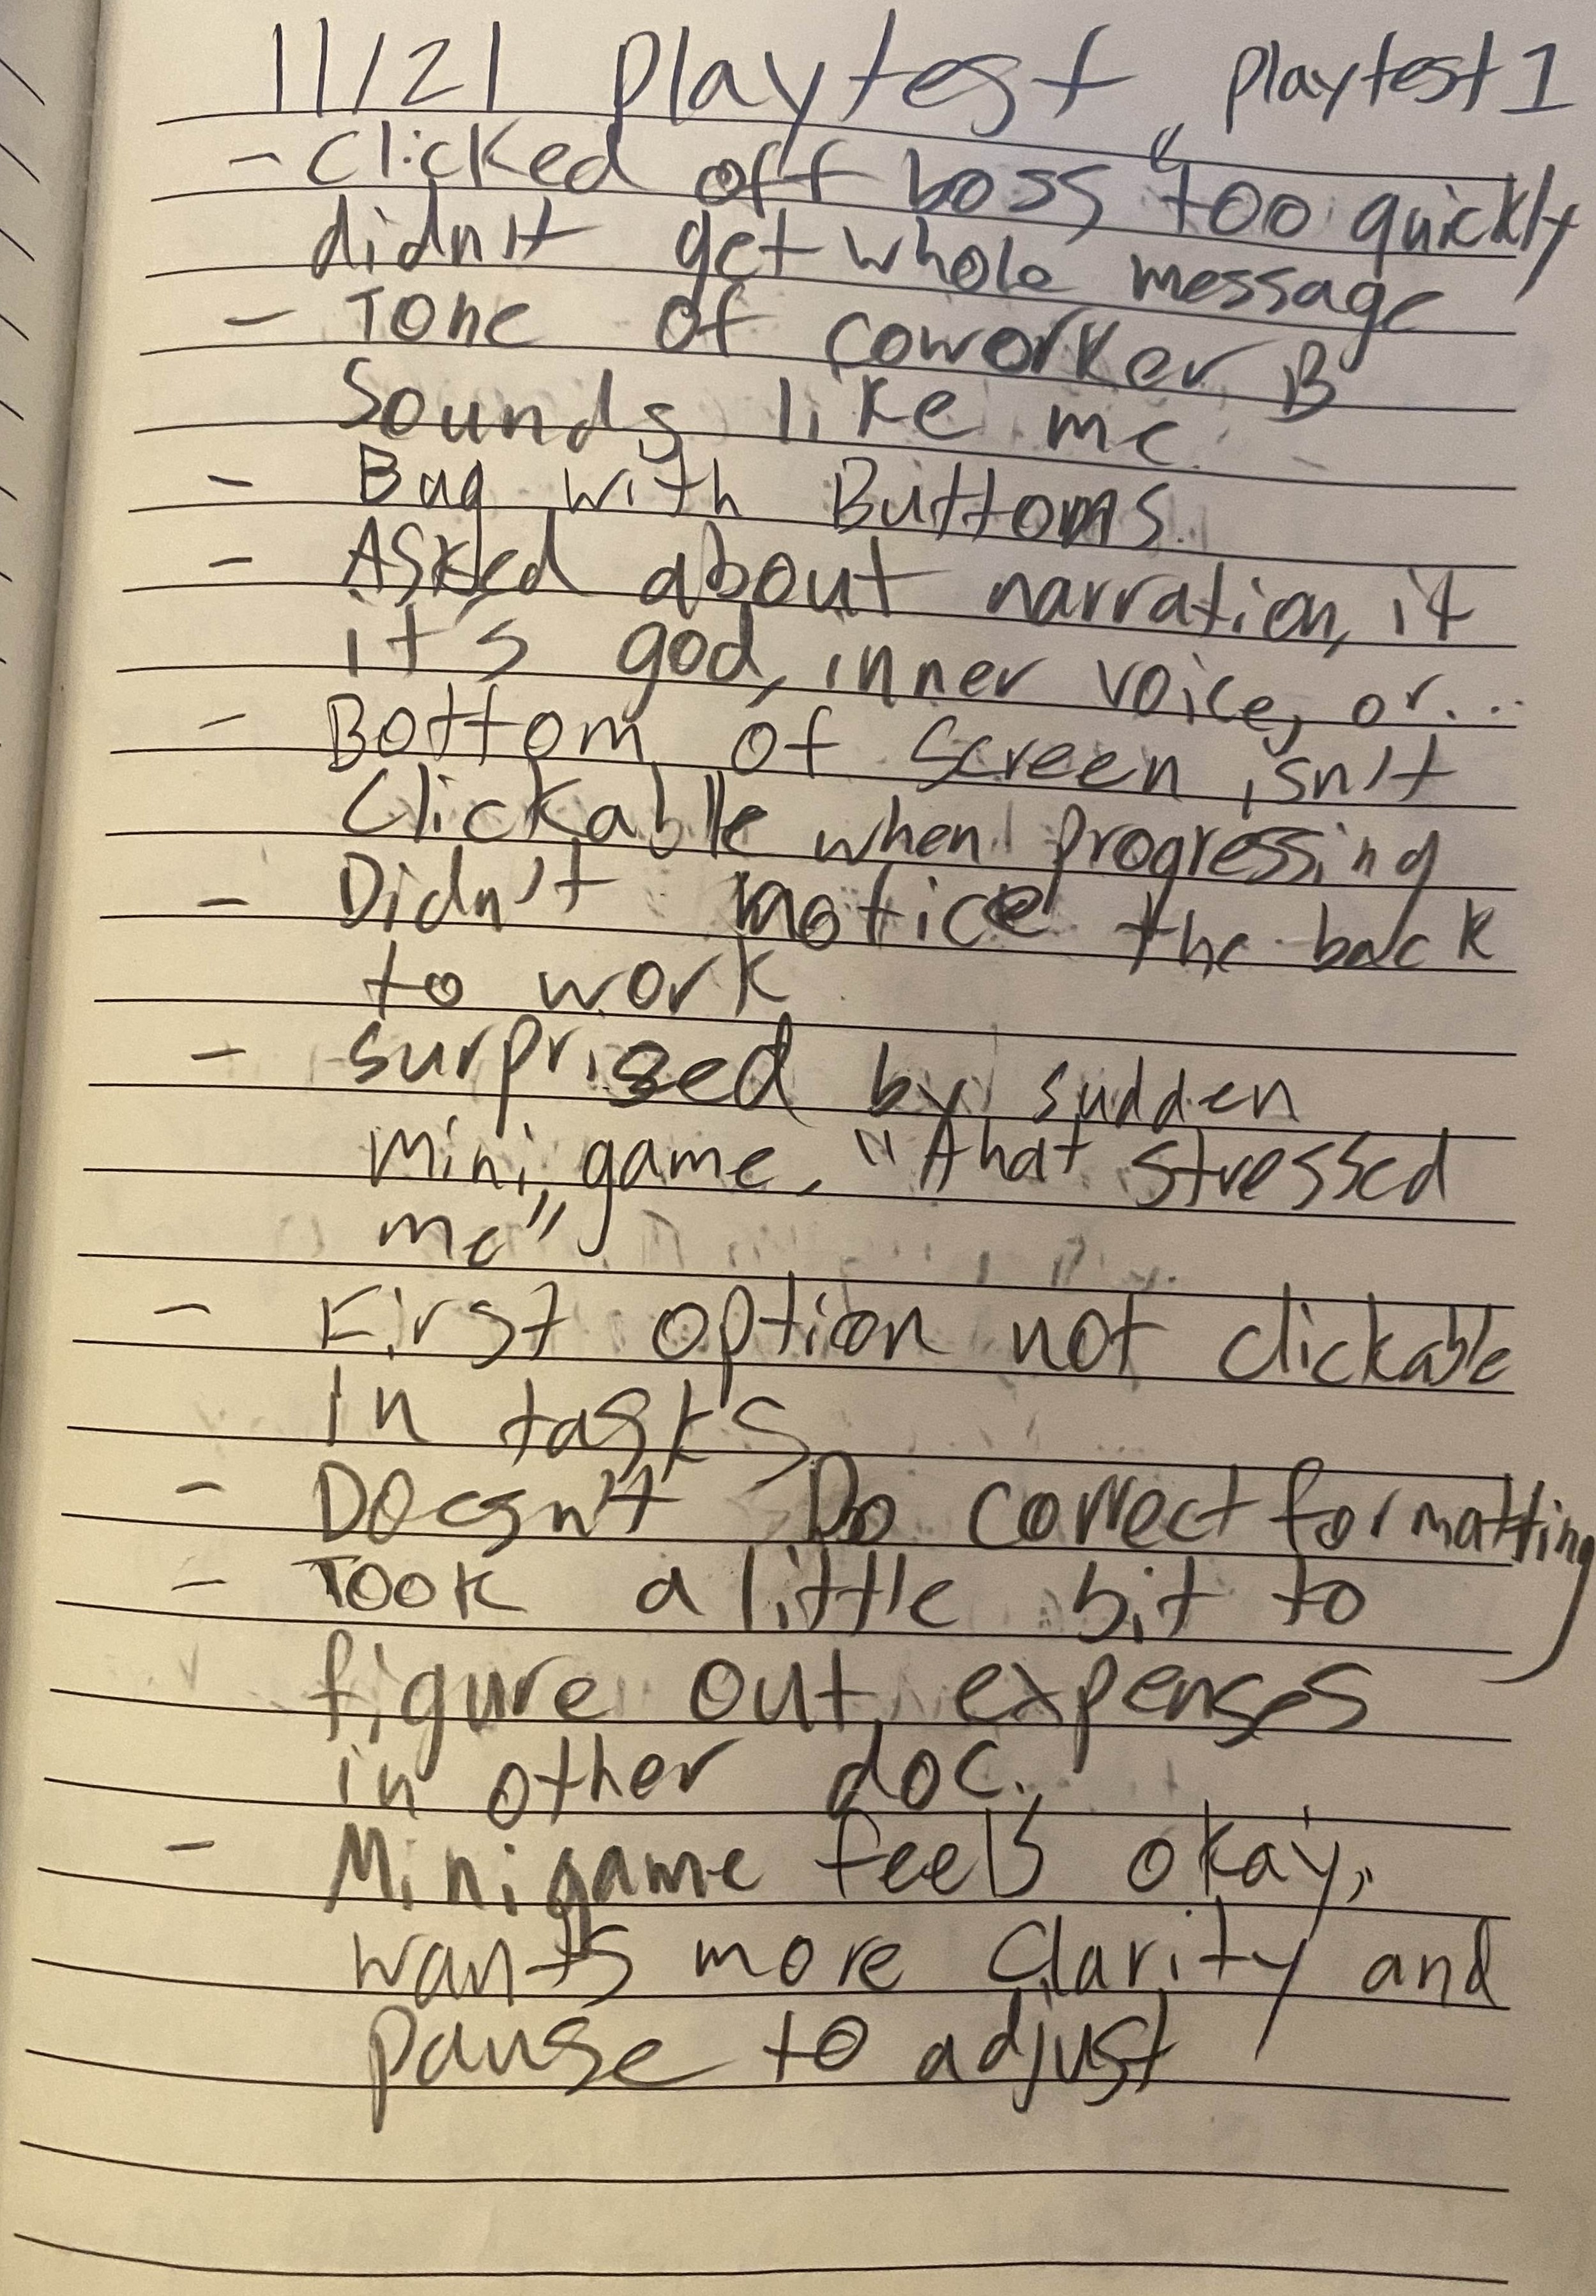 11/21 Playtest playtest 1
- Clicked off boss "too quickly
didn't get whole message
- Tone of coworker B
Sounds like me.
- Bug with Buttons.
- Asked about narration, if
it's god, inner voice, or...
- Bottom of screen isn't
Clickable when progressing
- Didn't notice the back
to work
- surprised by sudden
mini game, "that stressed
me"
- First option not clickable
in tasks
- Doesn't Do correct formatting
- Took a little bit to
figure out expenses
in other doc.
- Minigame feels okay,
wants more Clarity and
pause to adjust